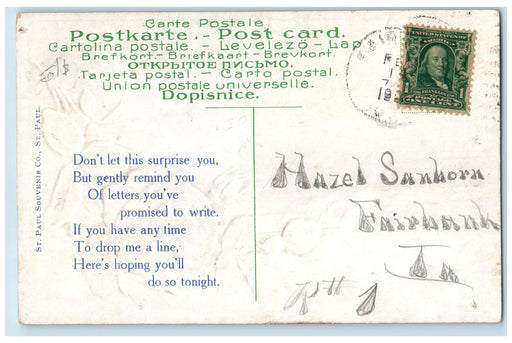 Carte Postale.
Postkarte. - Post card.
Cartolina postale. - Levelező-Lap.
Brefkort.-Briefkaart-Brevkort.
ОТКРЫТОЕ ПИСЬМО.
Tarjeta postal. - Carto postal.
Union postale universelle.
Dopisnice.
UNITED STATES OF AMERICA
POSTAGE
ONE CENT
ST. PAUL SOUVENIR CO., ST. PAUL.
Don't let this surprise you,
But gently remind you
Of letters you've
promised to write.
If you have any time
To drop me a line,
Here's hoping you'll
do so tonight.
Hazel Sanborn
Fairbank
Ia